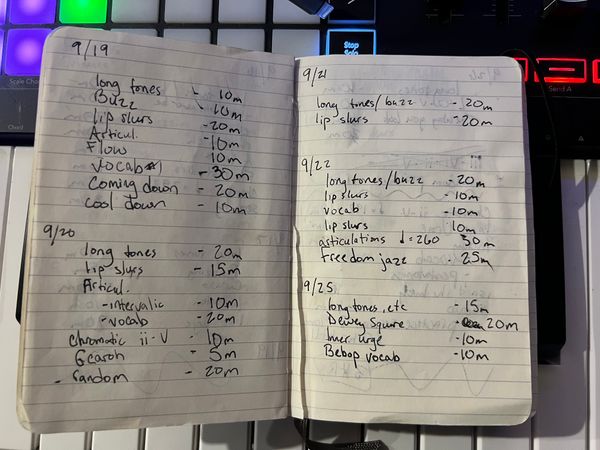 9/19
long tones 10m
Buzz 10m
lip slurs -20m
Articul. -10m
Flow 10m
vocab #1 -30m
Coming down - 20m
cool down - 10m
9/20
long tones - 20m
lip slurs - 15m
Articul.
-intervalic - 10m
-vocab - 20m
Chromatic ii-V - 10m
- 5m
- random - 20m
9/21
long tones/buzz - 20m
lip slurs - 20m
9/22
long tones/buzz - 20m
lip slurs - 10m
vocab - 10m
lip slurs 10m
articulations ♩=260 30m
freedom jazz 25m
9/25
long tones, etc - 15m
Dewey Square - 20m
Inner urge - 10m
Bebop vocab - 10m
Stop
Solo
Scale Chord
Chord
Send A